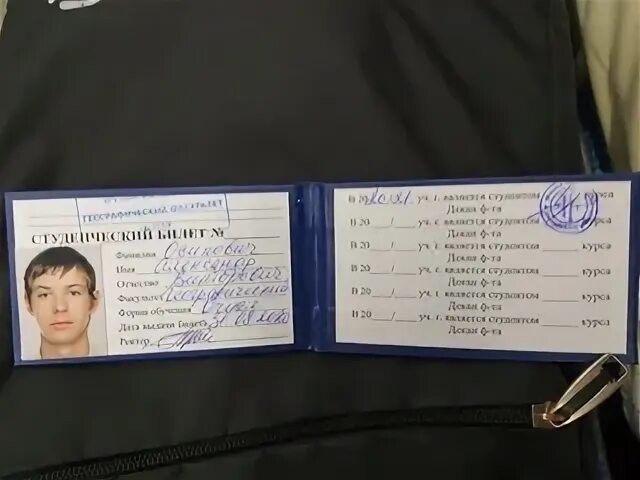 ГЕОГРАФИЧЕСКИЙ ФАКУЛЬТЕТ
СТУДЕНЧЕСКИЙ БИЛЕТ №
Фамилия Осипович
Имя Александр
Отчество Викторович
Факультет Географический
Форма обучения
Дата выдачи билета 31 08
Ректор
В 20 уч. г. является студентом курса
Декан ф-та
В 20__/__ уч. г. является студентом ___ курса
Декан ф-та
В 20__/__ уч. г. является студентом ___ курса
Декан ф-та
В 20__/__ уч. г. является студентом ___ курса
Декан ф-та
В 20__/__ уч. г. является студентом ___ курса
Декан ф-та